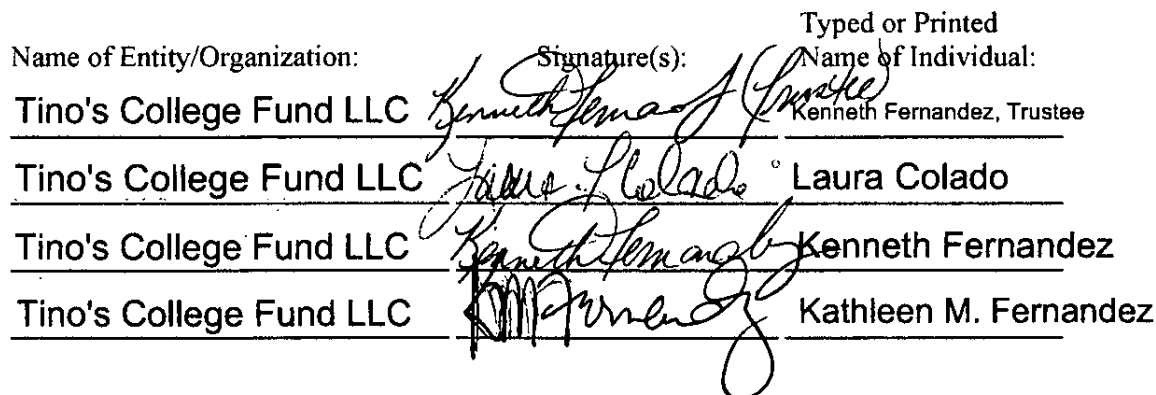 Typed or Printed
Name of Entity/Organization: Signature(s): Name of Individual:
Tino's College Fund LLC Kenneth Fernandez (Trustee) Kenneth Fernandez, Trustee
Tino's College Fund LLC Laura Colado Laura Colado
Tino's College Fund LLC Kenneth Fernandez Kenneth Fernandez
Tino's College Fund LLC KM Fernandez Kathleen M. Fernandez